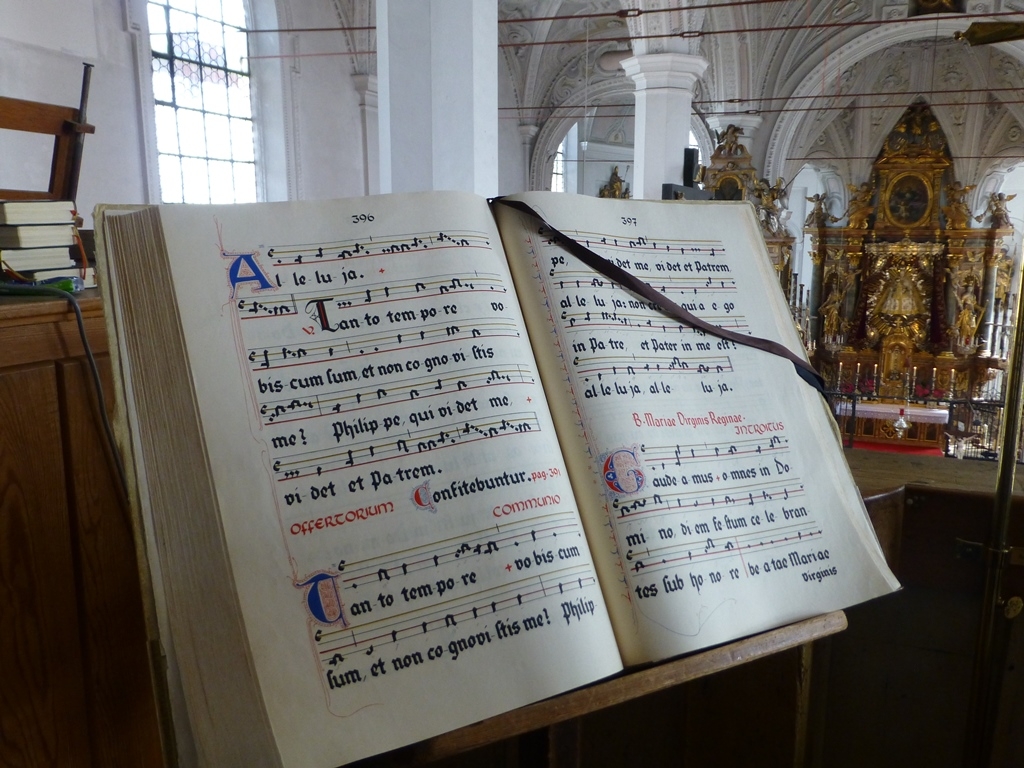 396
Al le lu ja. +
V. Tan-to tem po re vo-
bis cum sum, et non co gno vi stis
me? Philip pe, qui vi det me, +
vi det et Pa trem.
Confitebuntur. pag. 30
OFFERTORIUM COMMUNIO
Tan-to tem po re + vo bis cum
sum, et non co gnovi stis me? Philip
397
pe, vi det me, vi det et Patrem.
al le lu ja: non qui a e go
in Pa tre, et Pater in me est?
al le lu ja, al le lu ja.
B. Mariae Virginis Reginae.
INTROITUS
Gaude a mus + o mnes in Do
mi no, di em fe stum ce le bran
tes sub ho no re be a tae Mariae
Virginis